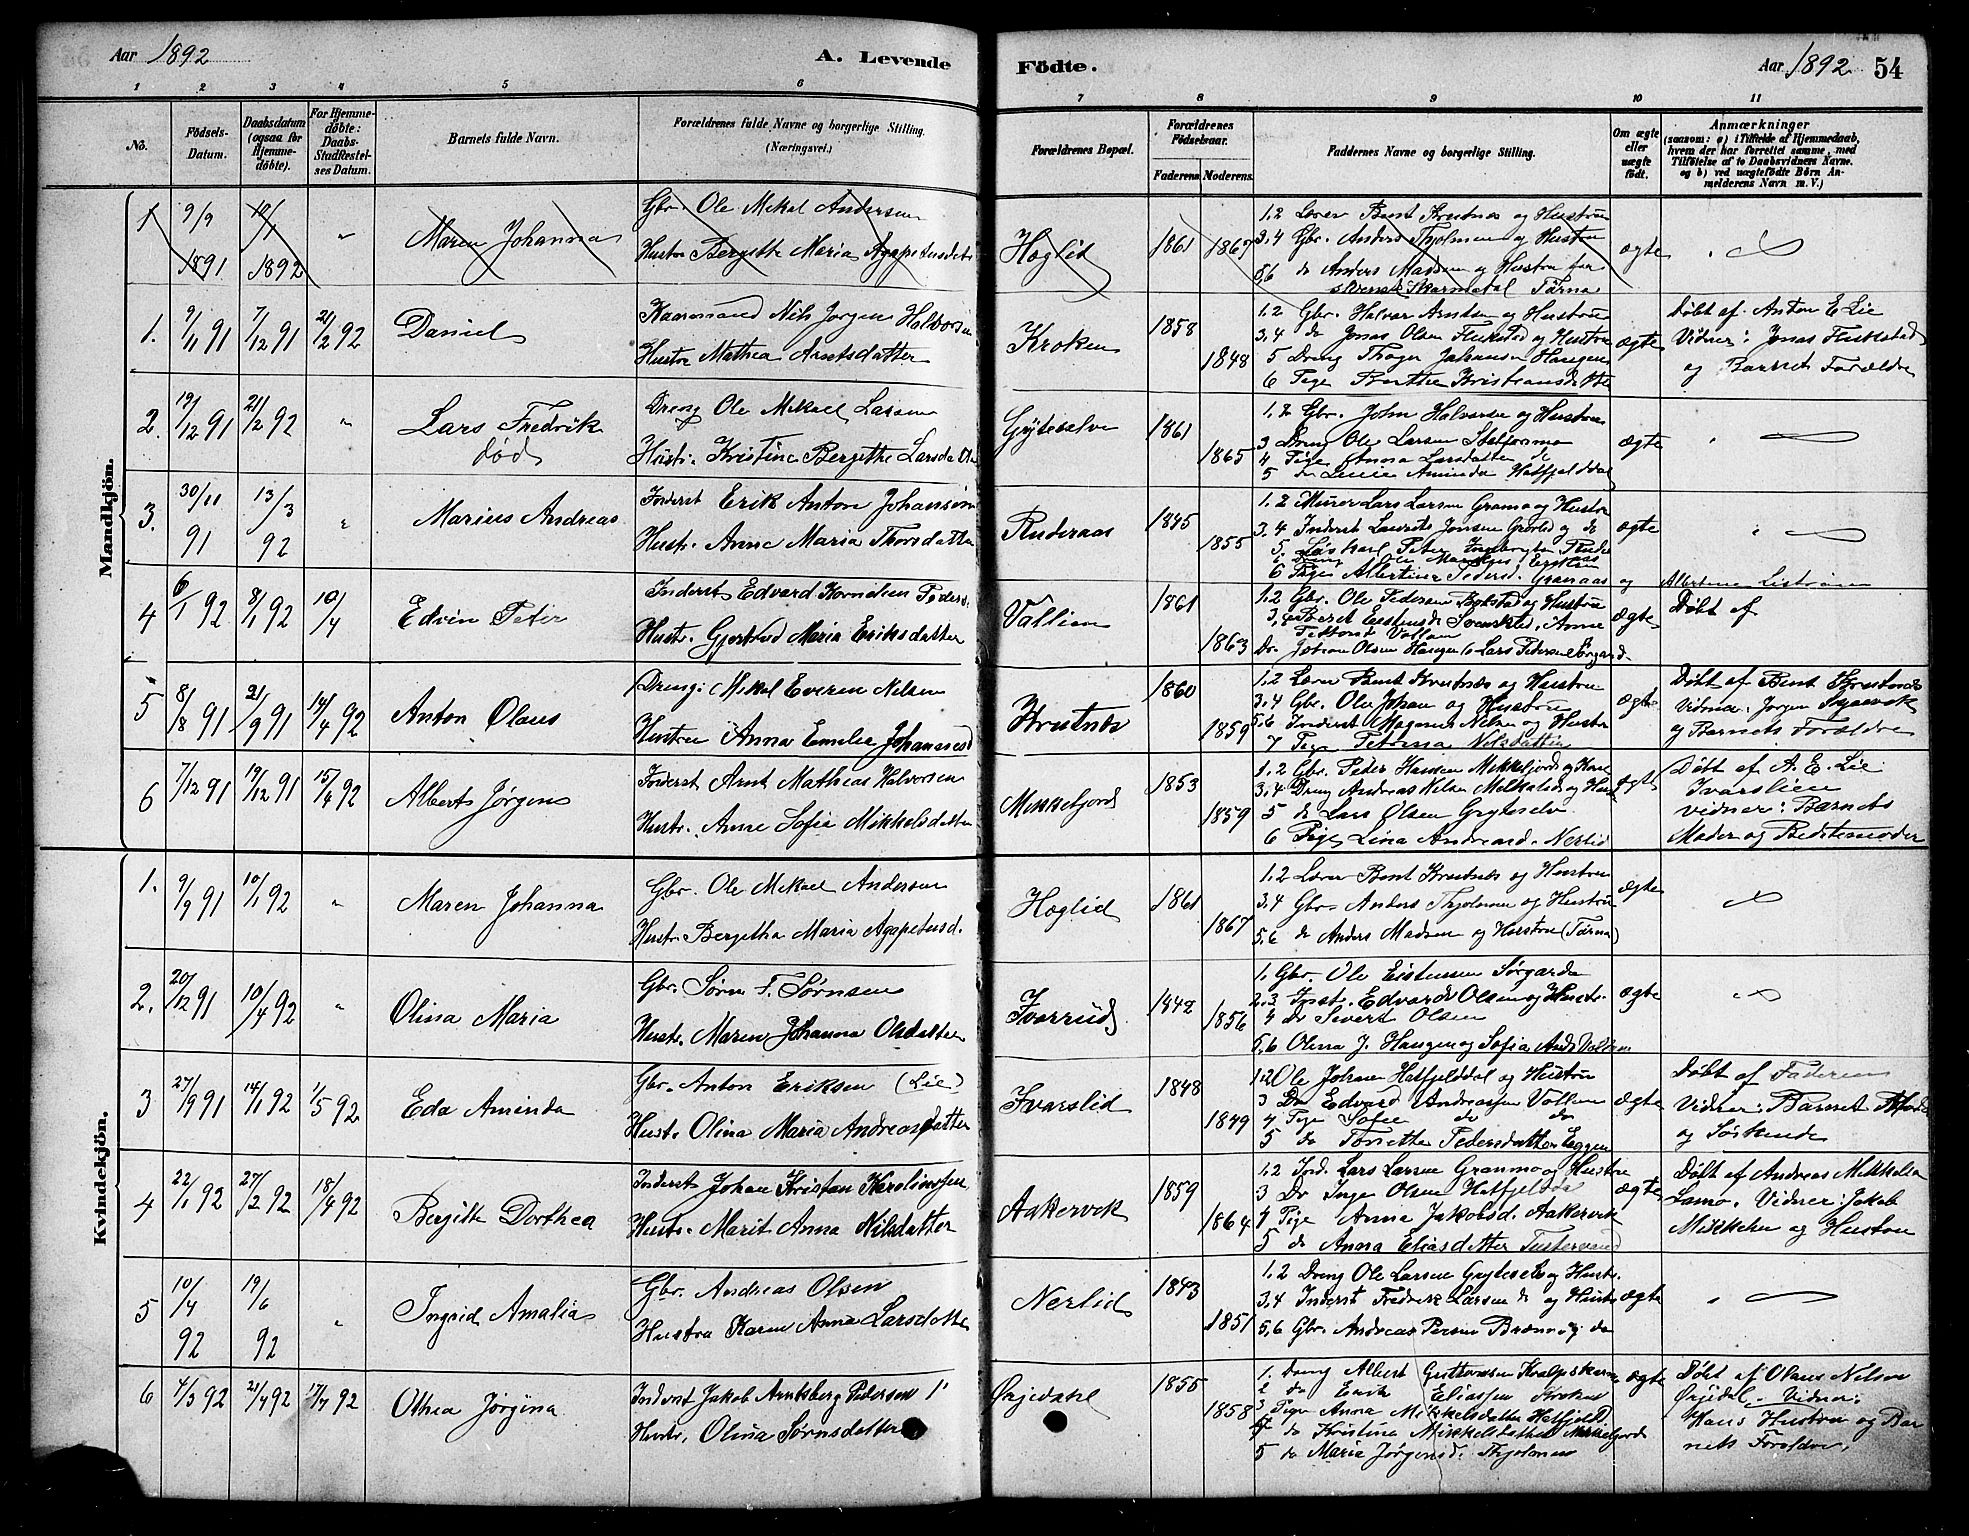 Aar 1892
A. Levende
Födte.
Aar 1892
54
1 2 3 4 5 6 7 8 9 10 11
No.
Födsels-
Datum.
Daabsdatum
(ogsaa for
Hjemme-
döbte).
For Hjemme-
döbte:
Daabs-
Stadfæstel-
ses Datum.
Barnets fulde Navn.
Forældrenes fulde Navne og borgerlige Stilling.
(Næringsvei.)
Forældrenes Bopæl.
Forældrenes
Födselsaar.
Faderens. Moderens.
Faddernes Navne og borgerlige Stilling.
Om ægte
eller
uægte
födt.
Anmærkninger
(saasom: a) i Tilfælde af Hjemmedaab,
hvem der har forrettet samme, med
Tilföielse af to Daabsvidners Navne.
og b) ved uægtefödte Börn An-
melderens Navn m. V.)
Mandkjön.
1 9/9 1891 10/1 1892 " Maren Johanna
Gbr. Ole Mikal Andersen
Hustr Bergitte Maria Agapetusdatt
Høglid 1861 1867
1,2 Lærer Bent Krutnæs og Hustru
3,4 Gbr. Anders Thjolmen og Hustru
5,6 do Anders Madsen og Hustru
Tärna
ægte
1. 9/11 91 7/12 91 21/2 92 Daniel
Kaarmand Nils Jørgen Halvorsen
Hustr Mathea Arntsdatter
Kroken 1858 1848
1.2 Gbr. Halvar Arntsen og Hustru
3,4 do Jonas Olsen og Hustru
5 Dreng Johansen Haugen
6 Pige Berthe Kristiansdatte
ægte
Døbt af Anton E. Lie
Vidner: Jonas
og Barnets Forældre
2. 19/12 91 21/2 92 " Lars Fredrik
død
Dreng Ole Mikael Larsen
Hustr. Kristine Bergithe Larsda
Gryteselve 1861 1865
1,2 Gbr. John Halvorsen og Hustru
3 Dreng Ole Larsen
4 Pige Anna Larsdatter do
5 do Aminda Hatfjelddal
ægte
3. 30/11 91 13/3 92 " Marius Andreas
Inderst Erik Anton Johansen
Hustr. Anne Maria Thorsdatter
Ruderaas 1845 1855
1.2 Murer Lars Larsen Granmo og Hustr
3.4 Inderst Laurits Jonsen og do
5 Løskarl Peter
6 Pige Albertine Pedersd. Granaas
ægte
4 6/1 92 8/1 92 10/4 Edvin Peter
Inderst Edvard Kornelius Peders.
Hustr. Gjertrud Maria Eriksdatter
Vallien 1861 1863
1.2 Gbr. Ole Pedersen og Hustru
Olsen Haugen Lars Pedersen Sørgaard
ægte
Døbt af
5 8/8 91 2/9 91 14/4 92 Anton Olaus
Dreng Mikal Everen Nilsen
Hustru Anna Emilie Johannesd
Krutnæs 1860 1859
1,2 Lærer Bent Krutnæs og Hustru
3,4 Gbr. Ole Johan og Hustru
5,6 Inderst Magnus Nilsen og Hustr
7 Pige Petrina Nilsdatter
ægte
Døbt af Bent Krutnæs
Vidner: Jørgen
og Barnets Forældre
6 7/12 91 19/12 91 15/4 92 Alberts Jørgens
Inderst Arnt Mathias Halvorsen
Hustr. Anne Sofia Mikkelsdatter
Mikkeljord 1853 1859
1.2 Gbr. Peder Hansen Mikkeljord og Kone
3,4 Dreng Andreas Nilsen og Hustr
5 do Lars Olsen Gryteselv
6 Pige Lina Andreasd. Nerlid
ægte
Døbt af A. E. Lie
Ivarslien
vidner: Barnets
Moder og Bedstemoder
Kvindekjön.
1. 9/9 91 10/1 92 " Maren Johanna
Gbr. Ole Mikael Andersen
Hustr. Bergitha Maria Agapetusd.
Høglid 1861 1867
1.2 Lærer Bent Krutnæs og Hustru
3,4 Gbr. Anders Thjolmen og Hustru
5,6 do Anders Madsen og Hustru (Tärna)
ægte
2. 20/12 91 10/4 92 " Olina Maria
Gbr. Sørn F. Sørnsen
Hustr. Maren Johanna Olsdatter
Ivarrud 1842 1856
1. Gbr. Ole Eistensen Sørgarde
2.3 Inst. Edvard Olsen og Hustr.
4 do Sivert Olsen
5,6 Olina J. Haugen og Sofia
ægte
3 27/9 91 14/1 92 1/5 92 Eda Aminda
Gbr. Anton Eriksen (Lie)
Hustr. Olina Maria Andreasdatter
Ivarslid 1848 1849
1.2 Ole Johan Hatfjelddal og Hustru
3 Dr Edvard Andreassen Vollen
4 Pige Sofie do do
5 do Pedersdatter Eggen
ægte
Døbt af Faderen
Vidner: Barnets Moder
og Søskende
4 22/1 92 27/2 92 18/4 92 Bergitte Dorthea
Inderst Johan Kristian Karolinssen
Hustr. Marit Anna Nilsdatter
Aakervik 1859 1864
1.2 Ind. Lars Larsen Granmo og Hustru
3 Dr Inge Olsen
4 Pige Anna Jakobsd. Aakervik
5 do Anna Eliasdatter Tustervand
ægte
Døbt af Andreas Mikkelsen
Lamo. Vidner: Jakob
Mikkelsen og Hustru
5 10/4 92 19/6 92 " Ingrid Amalia
Gbr. Andreas Olsen
Hustru Karen Anna Larsdatte
Nerlid 1843 1851
1.2 Dreng Ole Larsen Gryteselv og Hustr.
3,4 Inderst Fredrik Larsen do og Hustr
5,6 Gbr. Andreas og do
ægte
6 4/3 92 21/4 92 17/7 92 Othea Jørgina
Inderst Jakob Arntsberg Pedersen
Hustr. Olina Sørnsdatter
Ørjedahl 1855 1858
1. Dreng Albert Guttormsen
2 do Erik Eliassen Kroken
3 Pige Anna Mikkelsdatter Hatfjeld
4 do Kristina Mikkelsdatter Mikkeljord
5 do Maria Jørgensd. Thjolmen
ægte
Døbt af Olaus Nilsen
Ørjedal. Vidner:
Hans Hustru og Bar
nets Forældre.